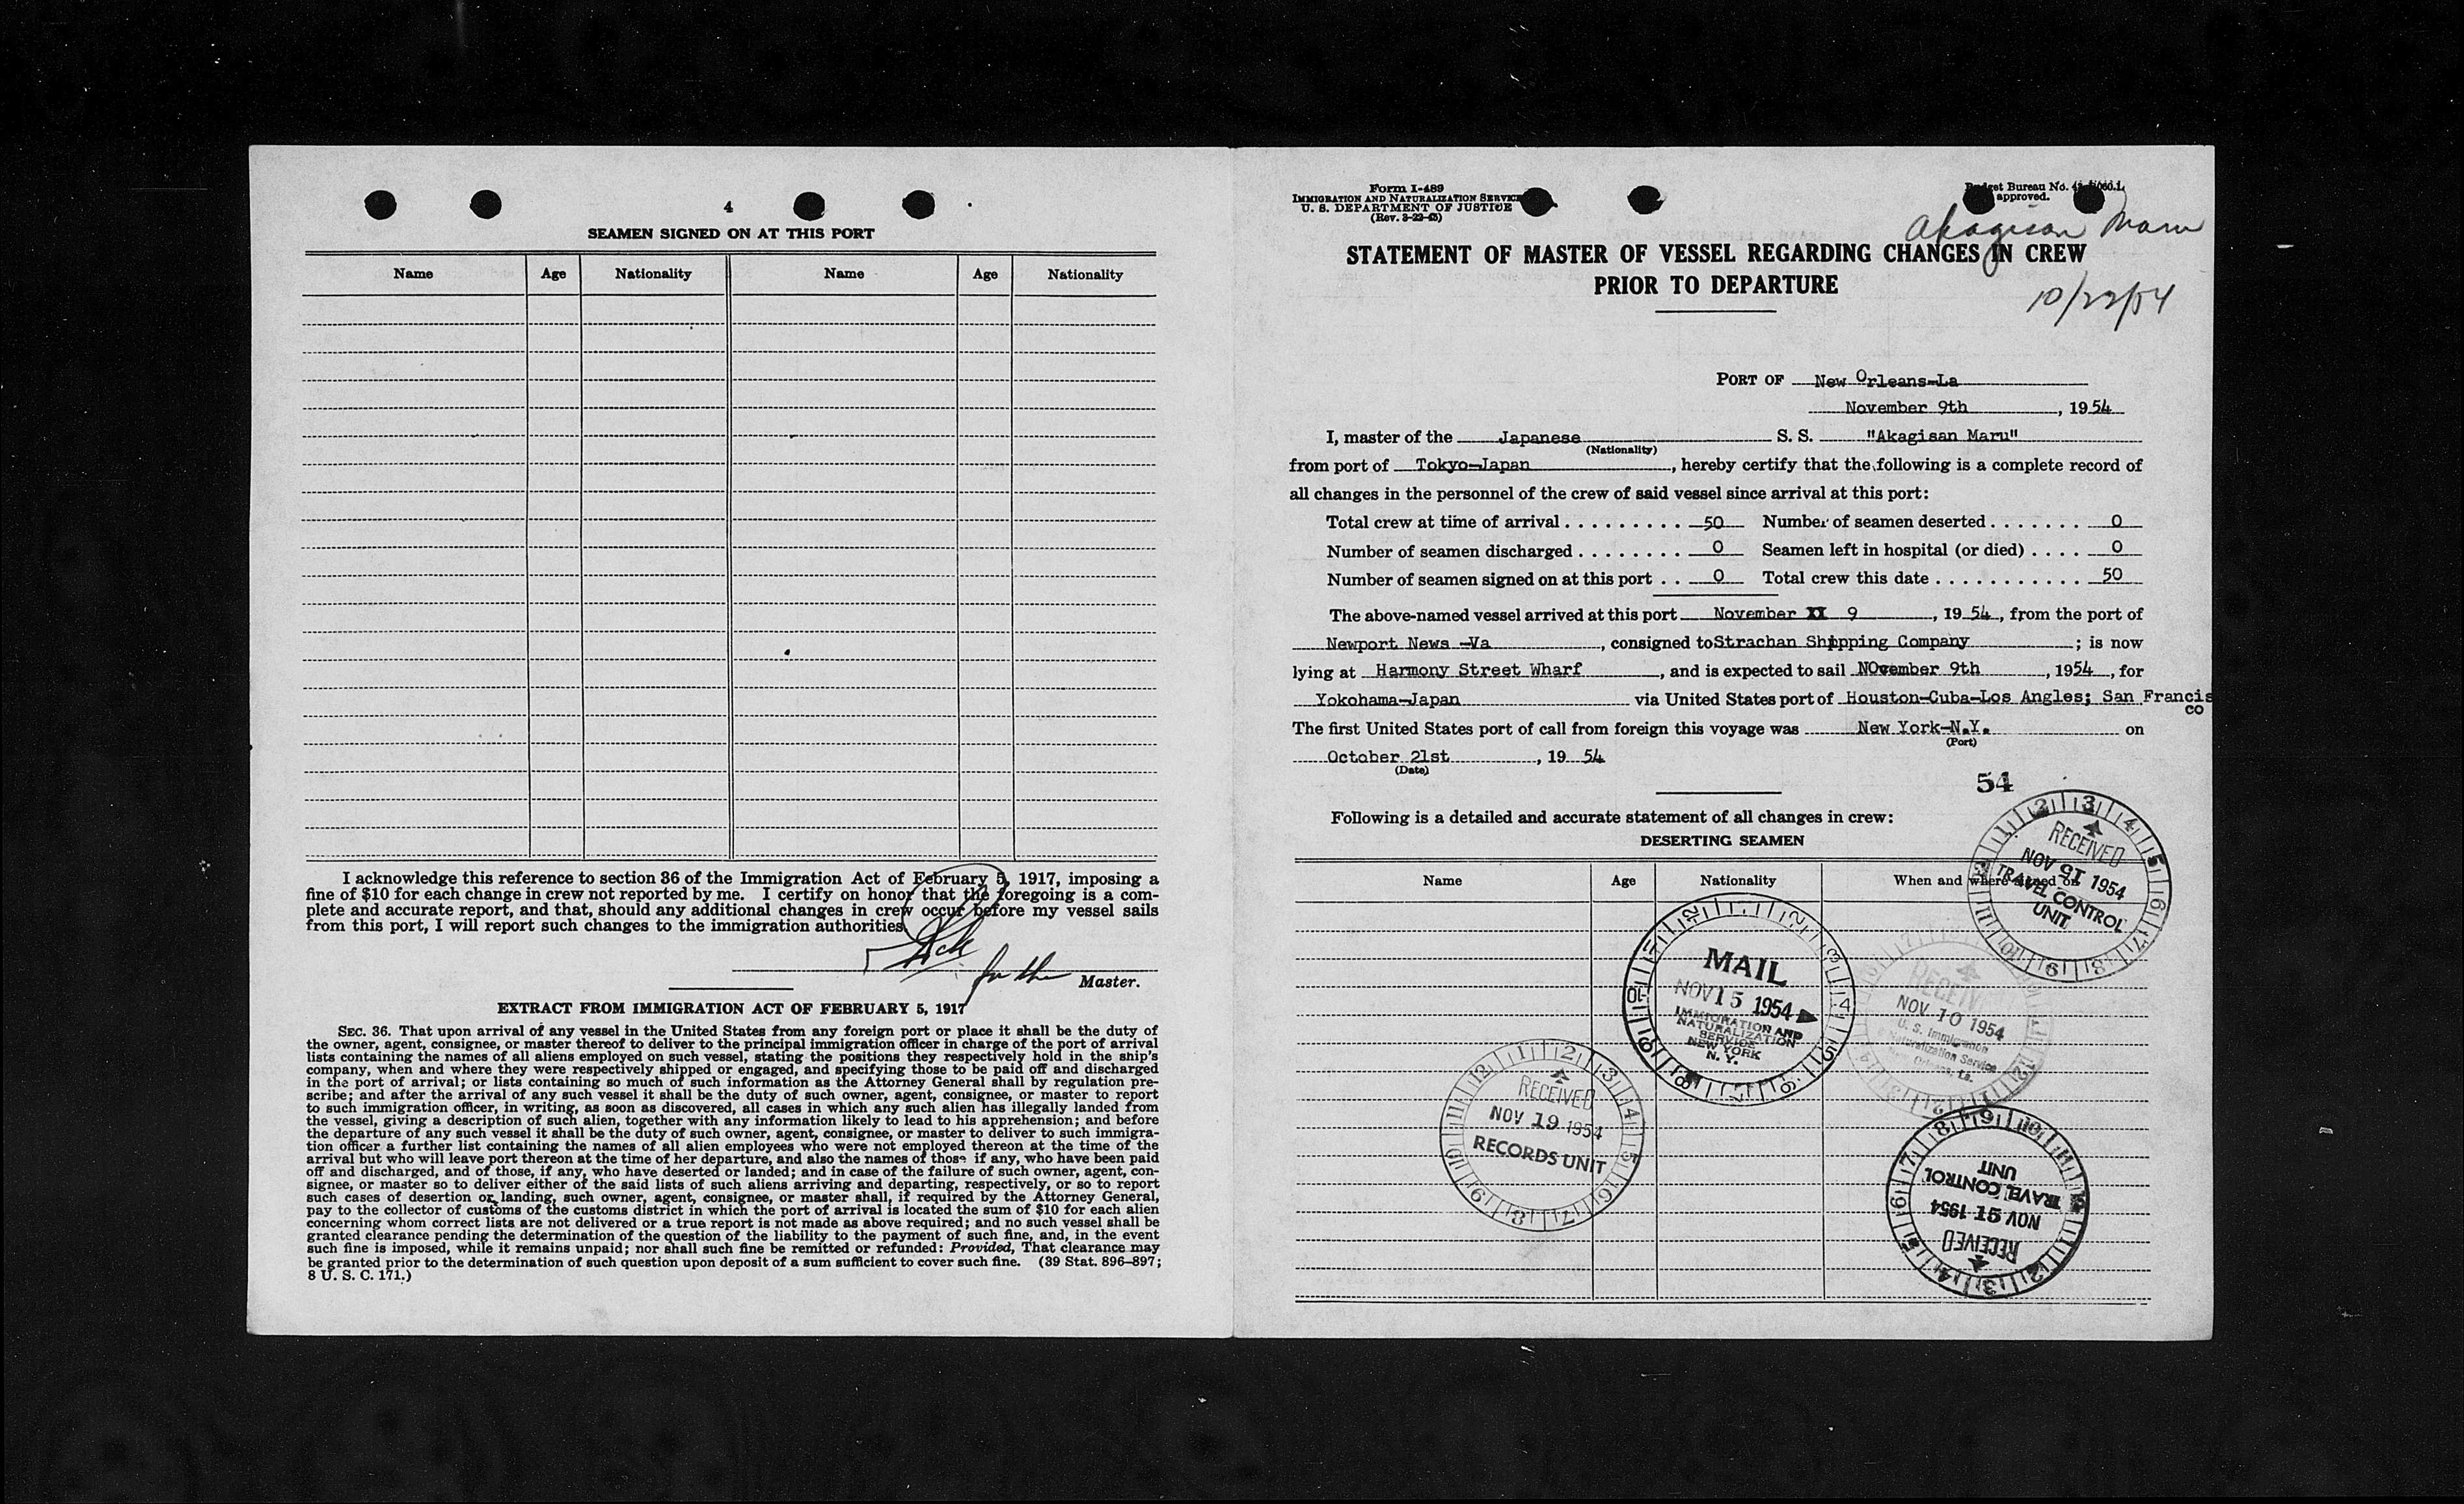 4
SEAMEN SIGNED ON AT THIS PORT
Name Age Nationality Name Age Nationality
I acknowledge this reference to section 36 of the Immigration Act of February 5, 1917, imposing a
fine of $10 for each change in crew not reported by me. I certify on honor that the foregoing is a com-
plete and accurate report, and that, should any additional changes in crew occur before my vessel sails
from this port, I will report such changes to the immigration authorities.
for the Master.
EXTRACT FROM IMMIGRATION ACT OF FEBRUARY 5, 1917
SEC. 36. That upon arrival of any vessel in the United States from any foreign port or place it shall be the duty of
the owner, agent, consignee, or master thereof to deliver to the principal immigration officer in charge of the port of arrival
lists containing the names of all aliens employed on such vessel, stating the positions they respectively hold in the ship's
company, when and where they were respectively shipped or engaged, and specifying those to be paid off and discharged
in the port of arrival; or lists containing so much of such information as the Attorney General shall by regulation pre-
scribe; and after the arrival of any such vessel it shall be the duty of such owner, agent, consignee, or master to report
to such immigration officer, in writing, as soon as discovered, all cases in which any such alien has illegally landed from
the vessel, giving a description of such alien, together with any information likely to lead to his apprehension; and before
the departure of any such vessel it shall be the duty of such owner, agent, consignee, or master to deliver to such immigra-
tion officer a further list containing the names of all alien employees who were not employed thereon at the time of the
arrival but who will leave port thereon at the time of her departure, and also the names of those if any, who have been paid
off and discharged, and of those, if any, who have deserted or landed; and in case of the failure of such owner, agent, con-
signee, or master so to deliver either of the said lists of such aliens arriving and departing, respectively, or so to report
such cases of desertion or landing, such owner, agent, consignee, or master shall, if required by the Attorney General,
pay to the collector of customs of the customs district in which the port of arrival is located the sum of $10 for each alien
concerning whom correct lists are not delivered or a true report is not made as above required; and no such vessel shall be
granted clearance pending the determination of the question of the liability to the payment of such fine, and, in the event
such fine is imposed, while it remains unpaid; nor shall such fine be remitted or refunded: Provided, That clearance may
be granted prior to the determination of such question upon deposit of a sum sufficient to cover such fine. (39 Stat. 896-897;
8 U. S. C. 171.)
Form I-489
IMMIGRATION AND NATURALIZATION SERVICE
U. S. DEPARTMENT OF JUSTICE
(Rev. 3-22-45)
Budget Bureau No.
approved.
Akagisan Maru
STATEMENT OF MASTER OF VESSEL REGARDING CHANGES IN CREW
PRIOR TO DEPARTURE
10/22/54
PORT OF New Orleans-La
November 9th, 1954
I, master of the Japanese S. S. "Akagisan Maru"
(Nationality)
from port of Tokyo-Japan, hereby certify that the following is a complete record of
all changes in the personnel of the crew of said vessel since arrival at this port:
Total crew at time of arrival . . . . . . . . . 50 Number of seamen deserted . . . . . . . 0
Number of seamen discharged . . . . . . . . 0 Seamen left in hospital (or died) . . . . 0
Number of seamen signed on at this port . . 0 Total crew this date . . . . . . . . . . . . 50
The above-named vessel arrived at this port November XX 9, 1954, from the port of
Newport News -Va, consigned to Strachan Shipping Company; is now
lying at Harmony Street Wharf, and is expected to sail NOvember 9th, 1954, for
Yokohama-Japan via United States port of Houston-Cuba-Los Angles; San Francis
co
The first United States port of call from foreign this voyage was New York-N.Y. on
(Port)
October 21st, 19 54
(Date)
54
Following is a detailed and accurate statement of all changes in crew:
DESERTING SEAMEN
Name Age Nationality When and where signed on
RECEIVED
NOV 9 1954
TRAVEL CONTROL
UNIT
MAIL
NOV 15 1954
IMMIGRATION AND
NATURALIZATION
SERVICE
NEW YORK
N. Y.
NOV 10 1954
U. S. Immigration
Naturalization Service
Orleans, La.
RECEIVED
NOV 19 1954
RECORDS UNIT
RECEIVED
NOV 1954
TRAVEL CONTROL
UNIT